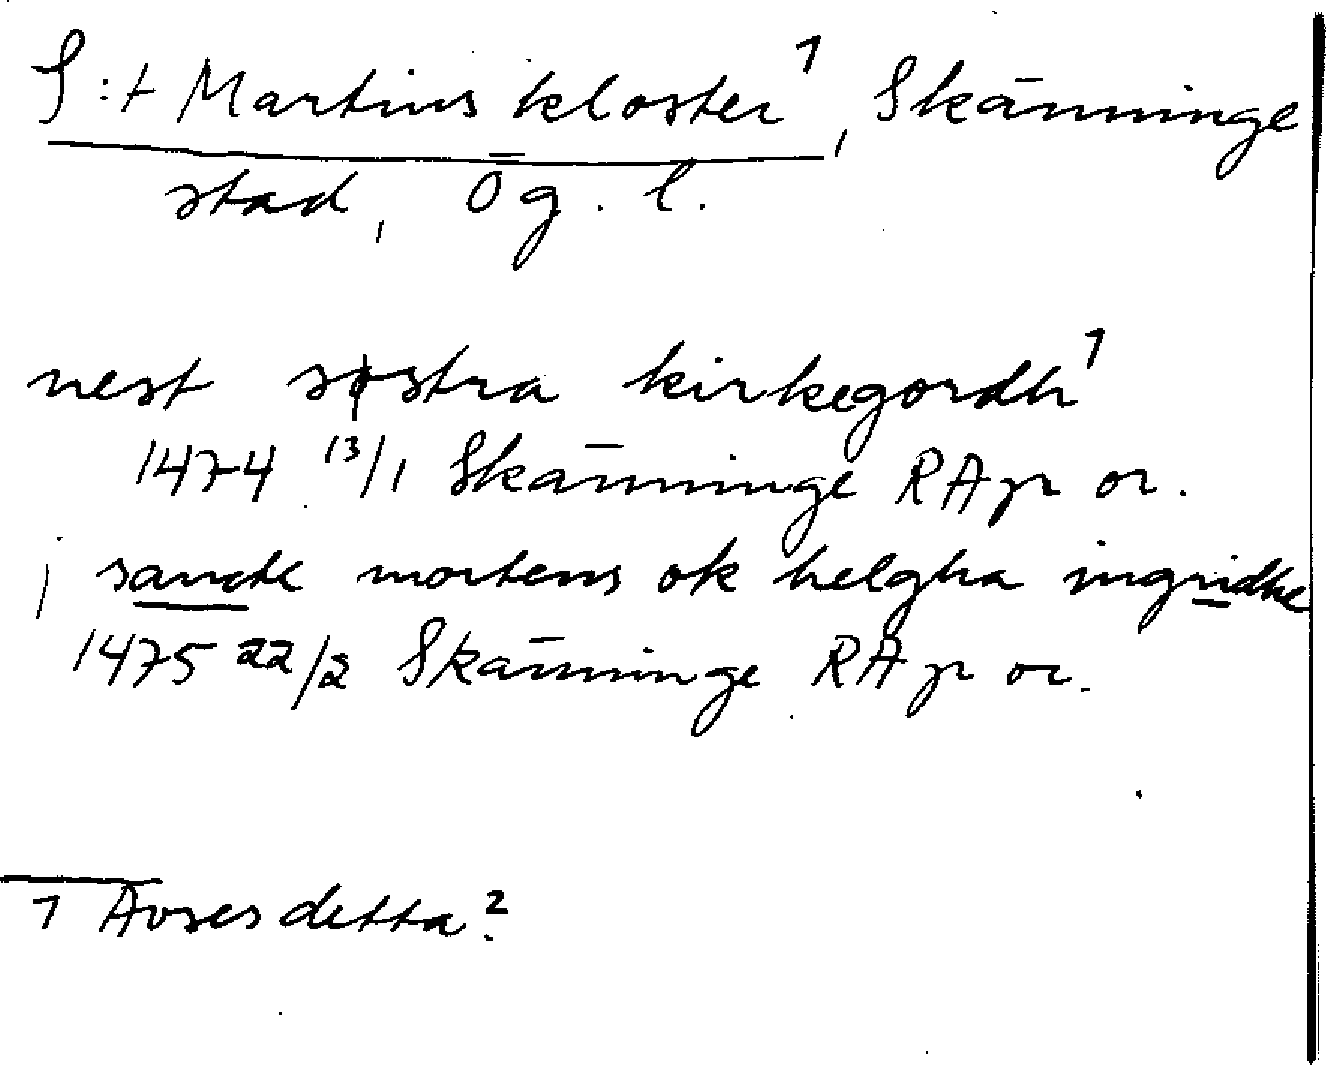 S:t Martins kloster¹, Skänninge
stad, Ög. l.
nest søstra kirkegordh¹
1474 13/1 Skänninge RAp or.
j sancte mortens ok helgha ingridhe
1475 22/2 Skänninge RAp or.
1 Avses detta?